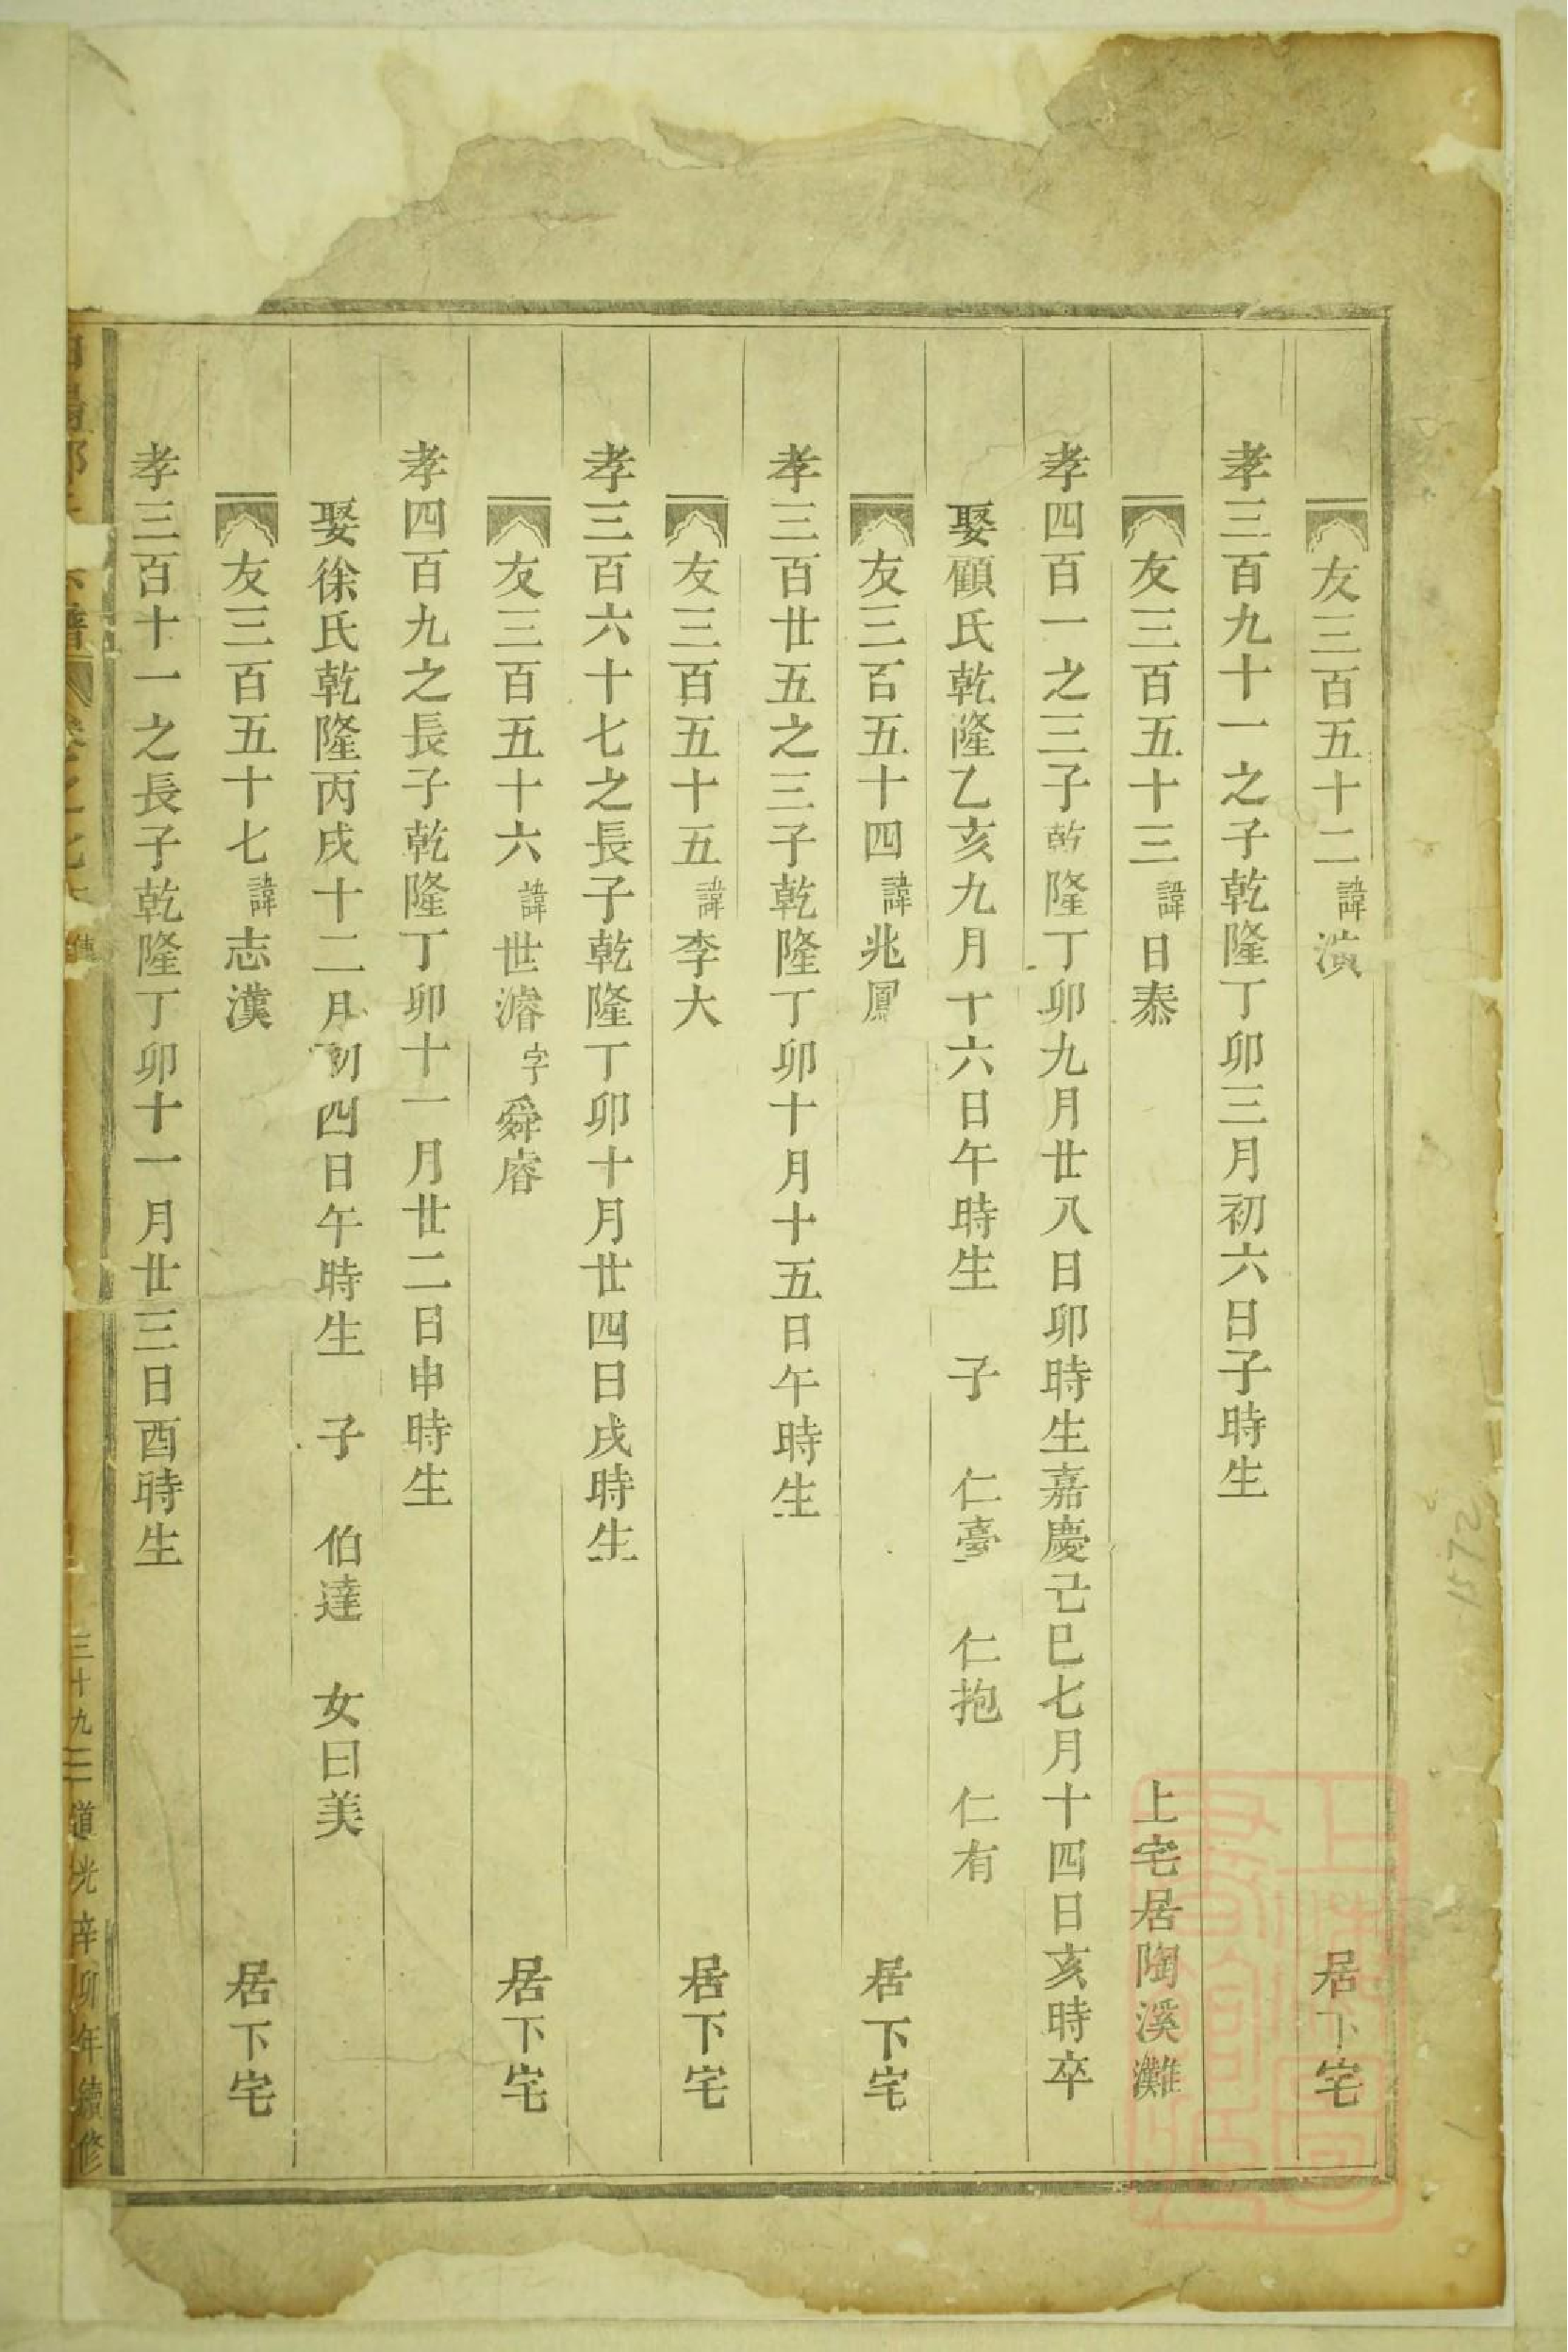 友三百五十二諱演 居下宅
孝三百九十一之子乾隆丁卯三月初六日子時生
友三百五十三諱日泰 上宅居陶溪灘
孝四百一之三子乾隆丁卯九月廿八日卯時生嘉慶己巳七月十四日亥時卒
娶顧氏乾隆乙亥九月十六日午時生 子 仁臺 仁抱 仁有
友三百五十四諱兆鳳 居下宅
孝三百廿五之三子乾隆丁卯十月十五日午時生
友三百五十五諱李大 居下宅
孝三百六十七之長子乾隆丁卯十月廿四日戌時生
友三百五十六諱世濬字舜睿 居下宅
孝四百九之長子乾隆丁卯十一月廿二日申時生
娶徐氏乾隆丙戌十二月初四日午時生 子 伯達 女曰美
友三百五十七諱志漢 居下宅
孝三百十一之長子乾隆丁卯十一月廿三日酉時生
譜 卷之七 傳 三十九 道光辛卯年續修
上海圖書館藏
1572